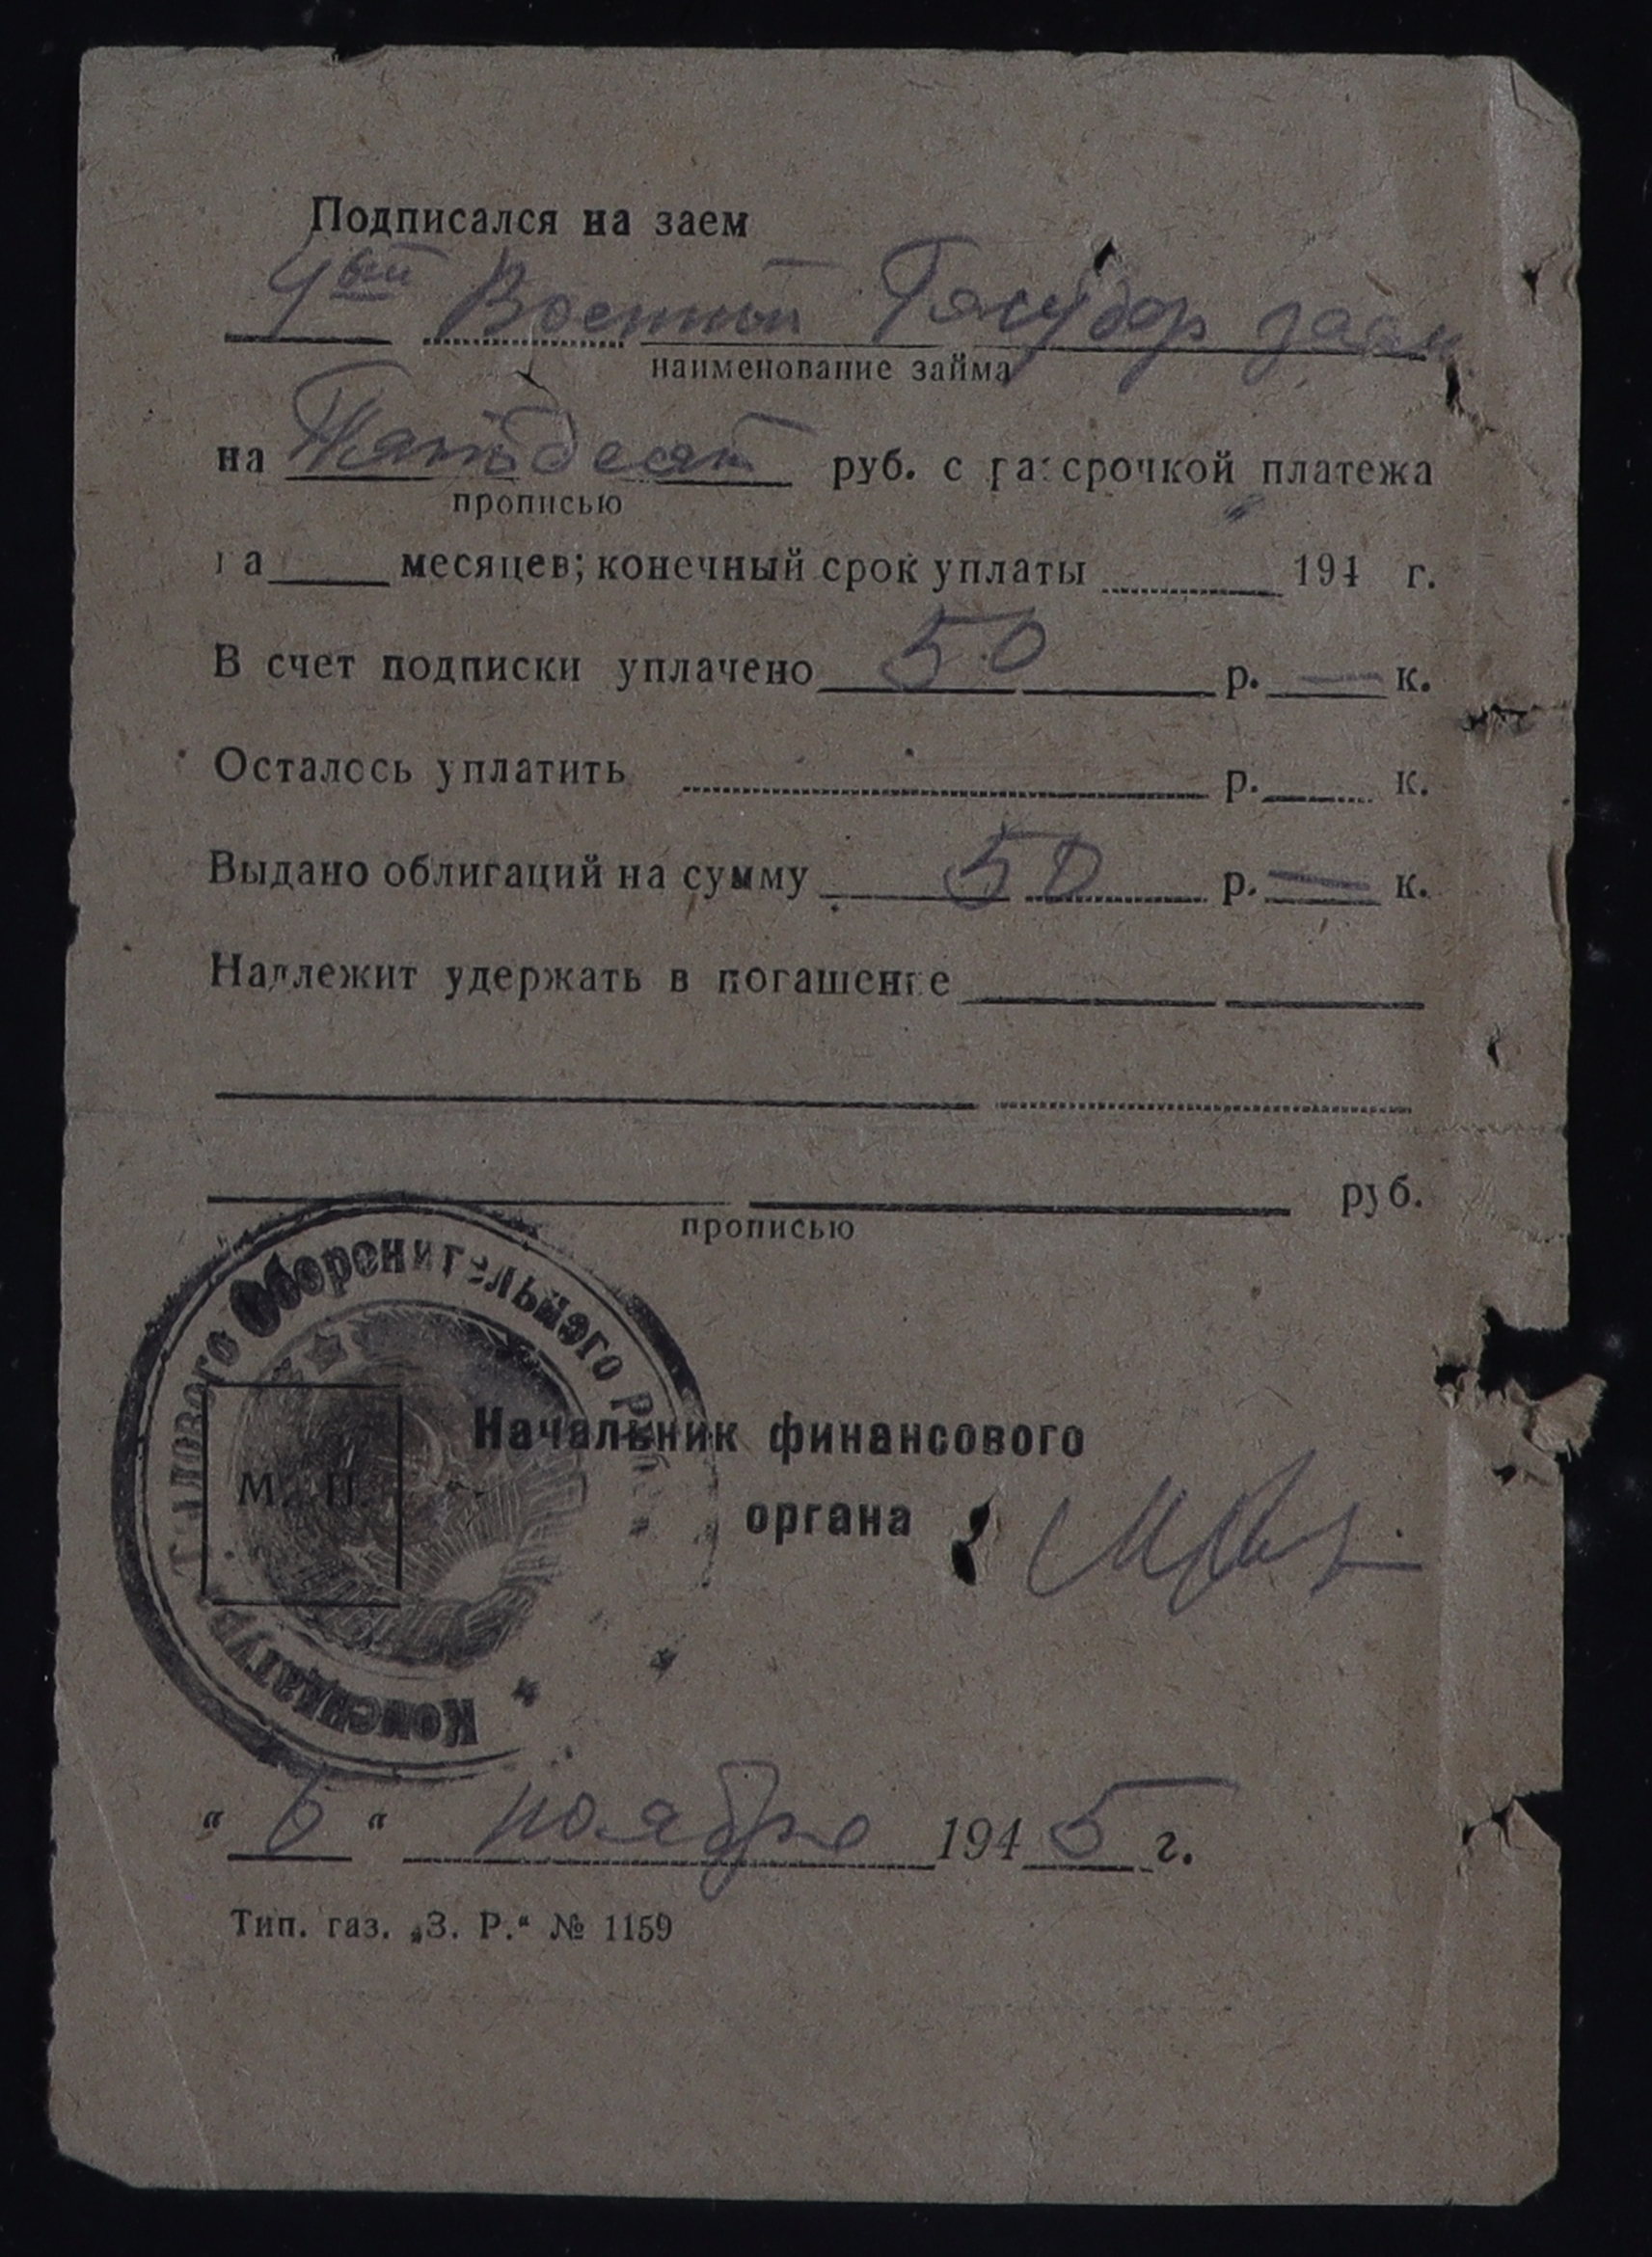 Подписался на заем
4ый Военный Госудор заем
наименование займа
на Пятьдесят руб. с рассрочкой платежа
прописью
на месяцев; конечный срок уплаты 194 г.
В счет подписки уплачено 50 р. — к.
Осталось уплатить р. к.
Выдано облигаций на сумму 50 р. — к.
Надлежит удержать в погашение
руб.
прописью
Комендатура Тылового Оборонительного
М. П.
Начальник финансового
органа
„ 6 “ ноября 1945 г.
Тип. газ. „З. Р.“ № 1159